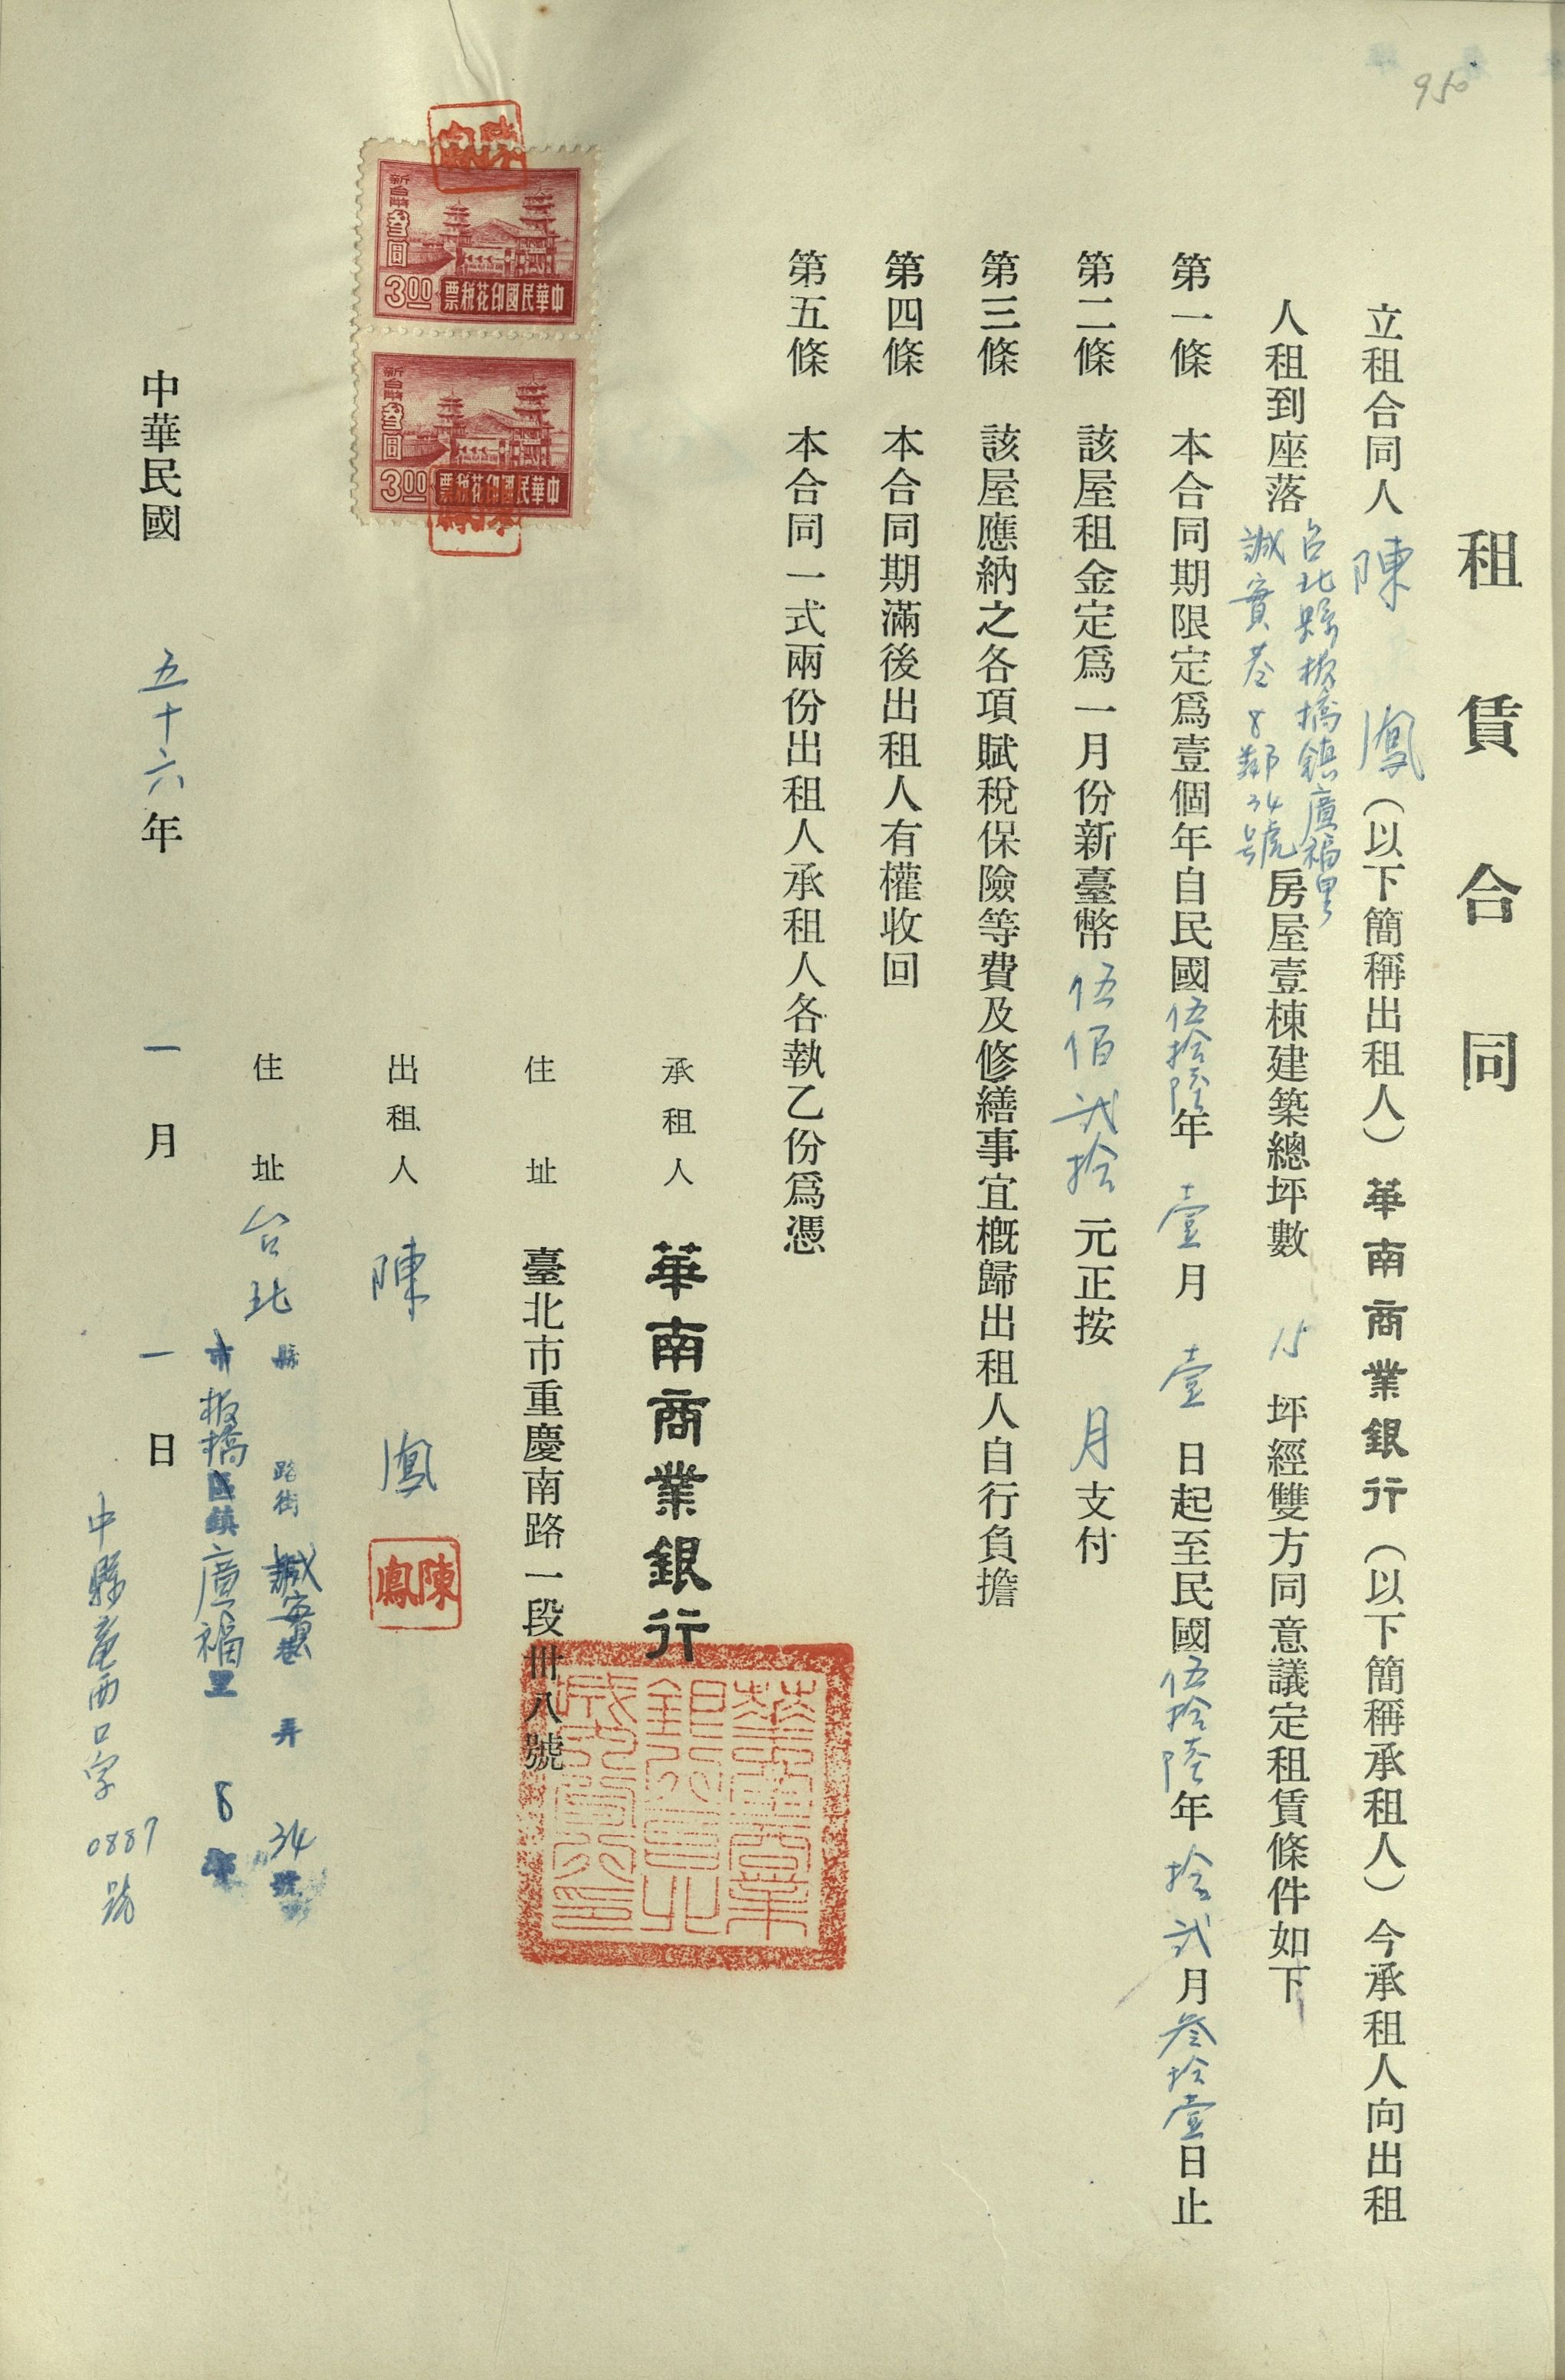 950
租賃合同
立租合同人陳鳳（以下簡稱出租人）華南商業銀行（以下簡稱承租人）今承租人向出租
人租到座落台北縣板橋鎮廣福里
誠實巷8鄰34號房屋壹棟建築總坪數15坪經雙方同意議定租賃條件如下
第一條　本合同期限定為壹個年自民國伍拾陸年壹月壹日起至民國伍拾陸年拾弍月叁拾壹日止
第二條　該屋租金定為一月份新臺幣伍佰弍拾元正按月支付
第三條　該屋應納之各項賦稅保險等費及修繕事宜概歸出租人自行負擔
第四條　本合同期滿後出租人有權收回
第五條　本合同一式兩份出租人承租人各執乙份為憑
承租人　華南商業銀行
住址　臺北市重慶南路一段卅八號
出租人　陳鳳
陳鳳
住址　台北縣路街誠實巷弄34號
市板橋區鎮廣福里8
中華民國五十六年一月一日
0887號
新台幣叁圓
3.00
中華民國印花稅票
新台幣叁圓
3.00
中華民國印花稅票